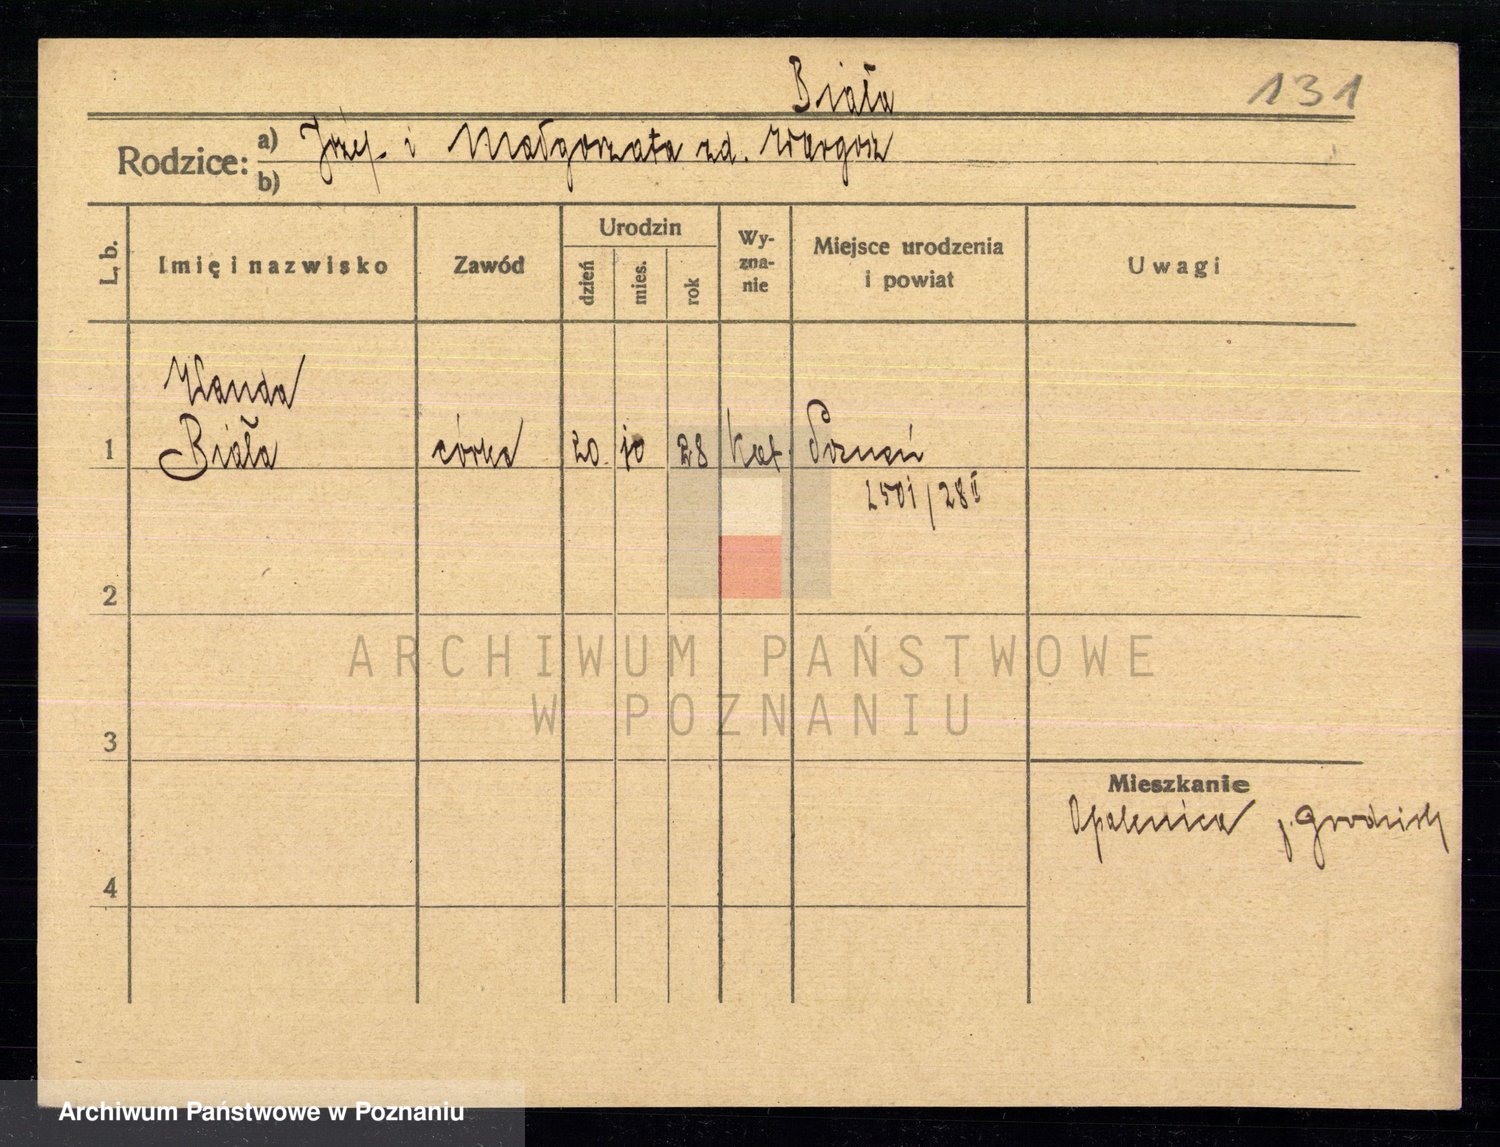 Biała
131
Rodzice: a) Józef i Małgorzata zd. Wargosz
b)
L. b.
Imię i nazwisko
Zawód
Urodzin
dzień
mies.
rok
Wy-
zna-
nie
Miejsce urodzenia
i powiat
Uwagi
Wanda
1 Biała córka 20. 10 28 kat. Poznań
2501/28 II
2
ARCHIWUM PAŃSTWOWE
W POZNANIU
3
Mieszkanie
Opalenica p. Grodzisk
4
Archiwum Państwowe w Poznaniu